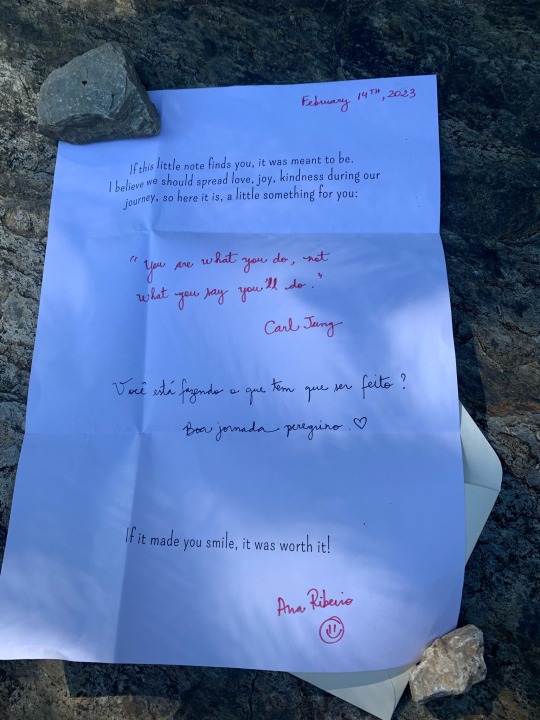 February 14TH, 2023
If this little note finds you, it was meant to be.
I believe we should spread love, joy, kindness during our
journey, so here it is, a little something for you:
"You are what you do, not
what you say you'll do."
Carl Jung
Você está fazendo o que tem que ser feito?
Boa jornada peregrino. ♡
If it made you smile, it was worth it!
Ana Ribeiro